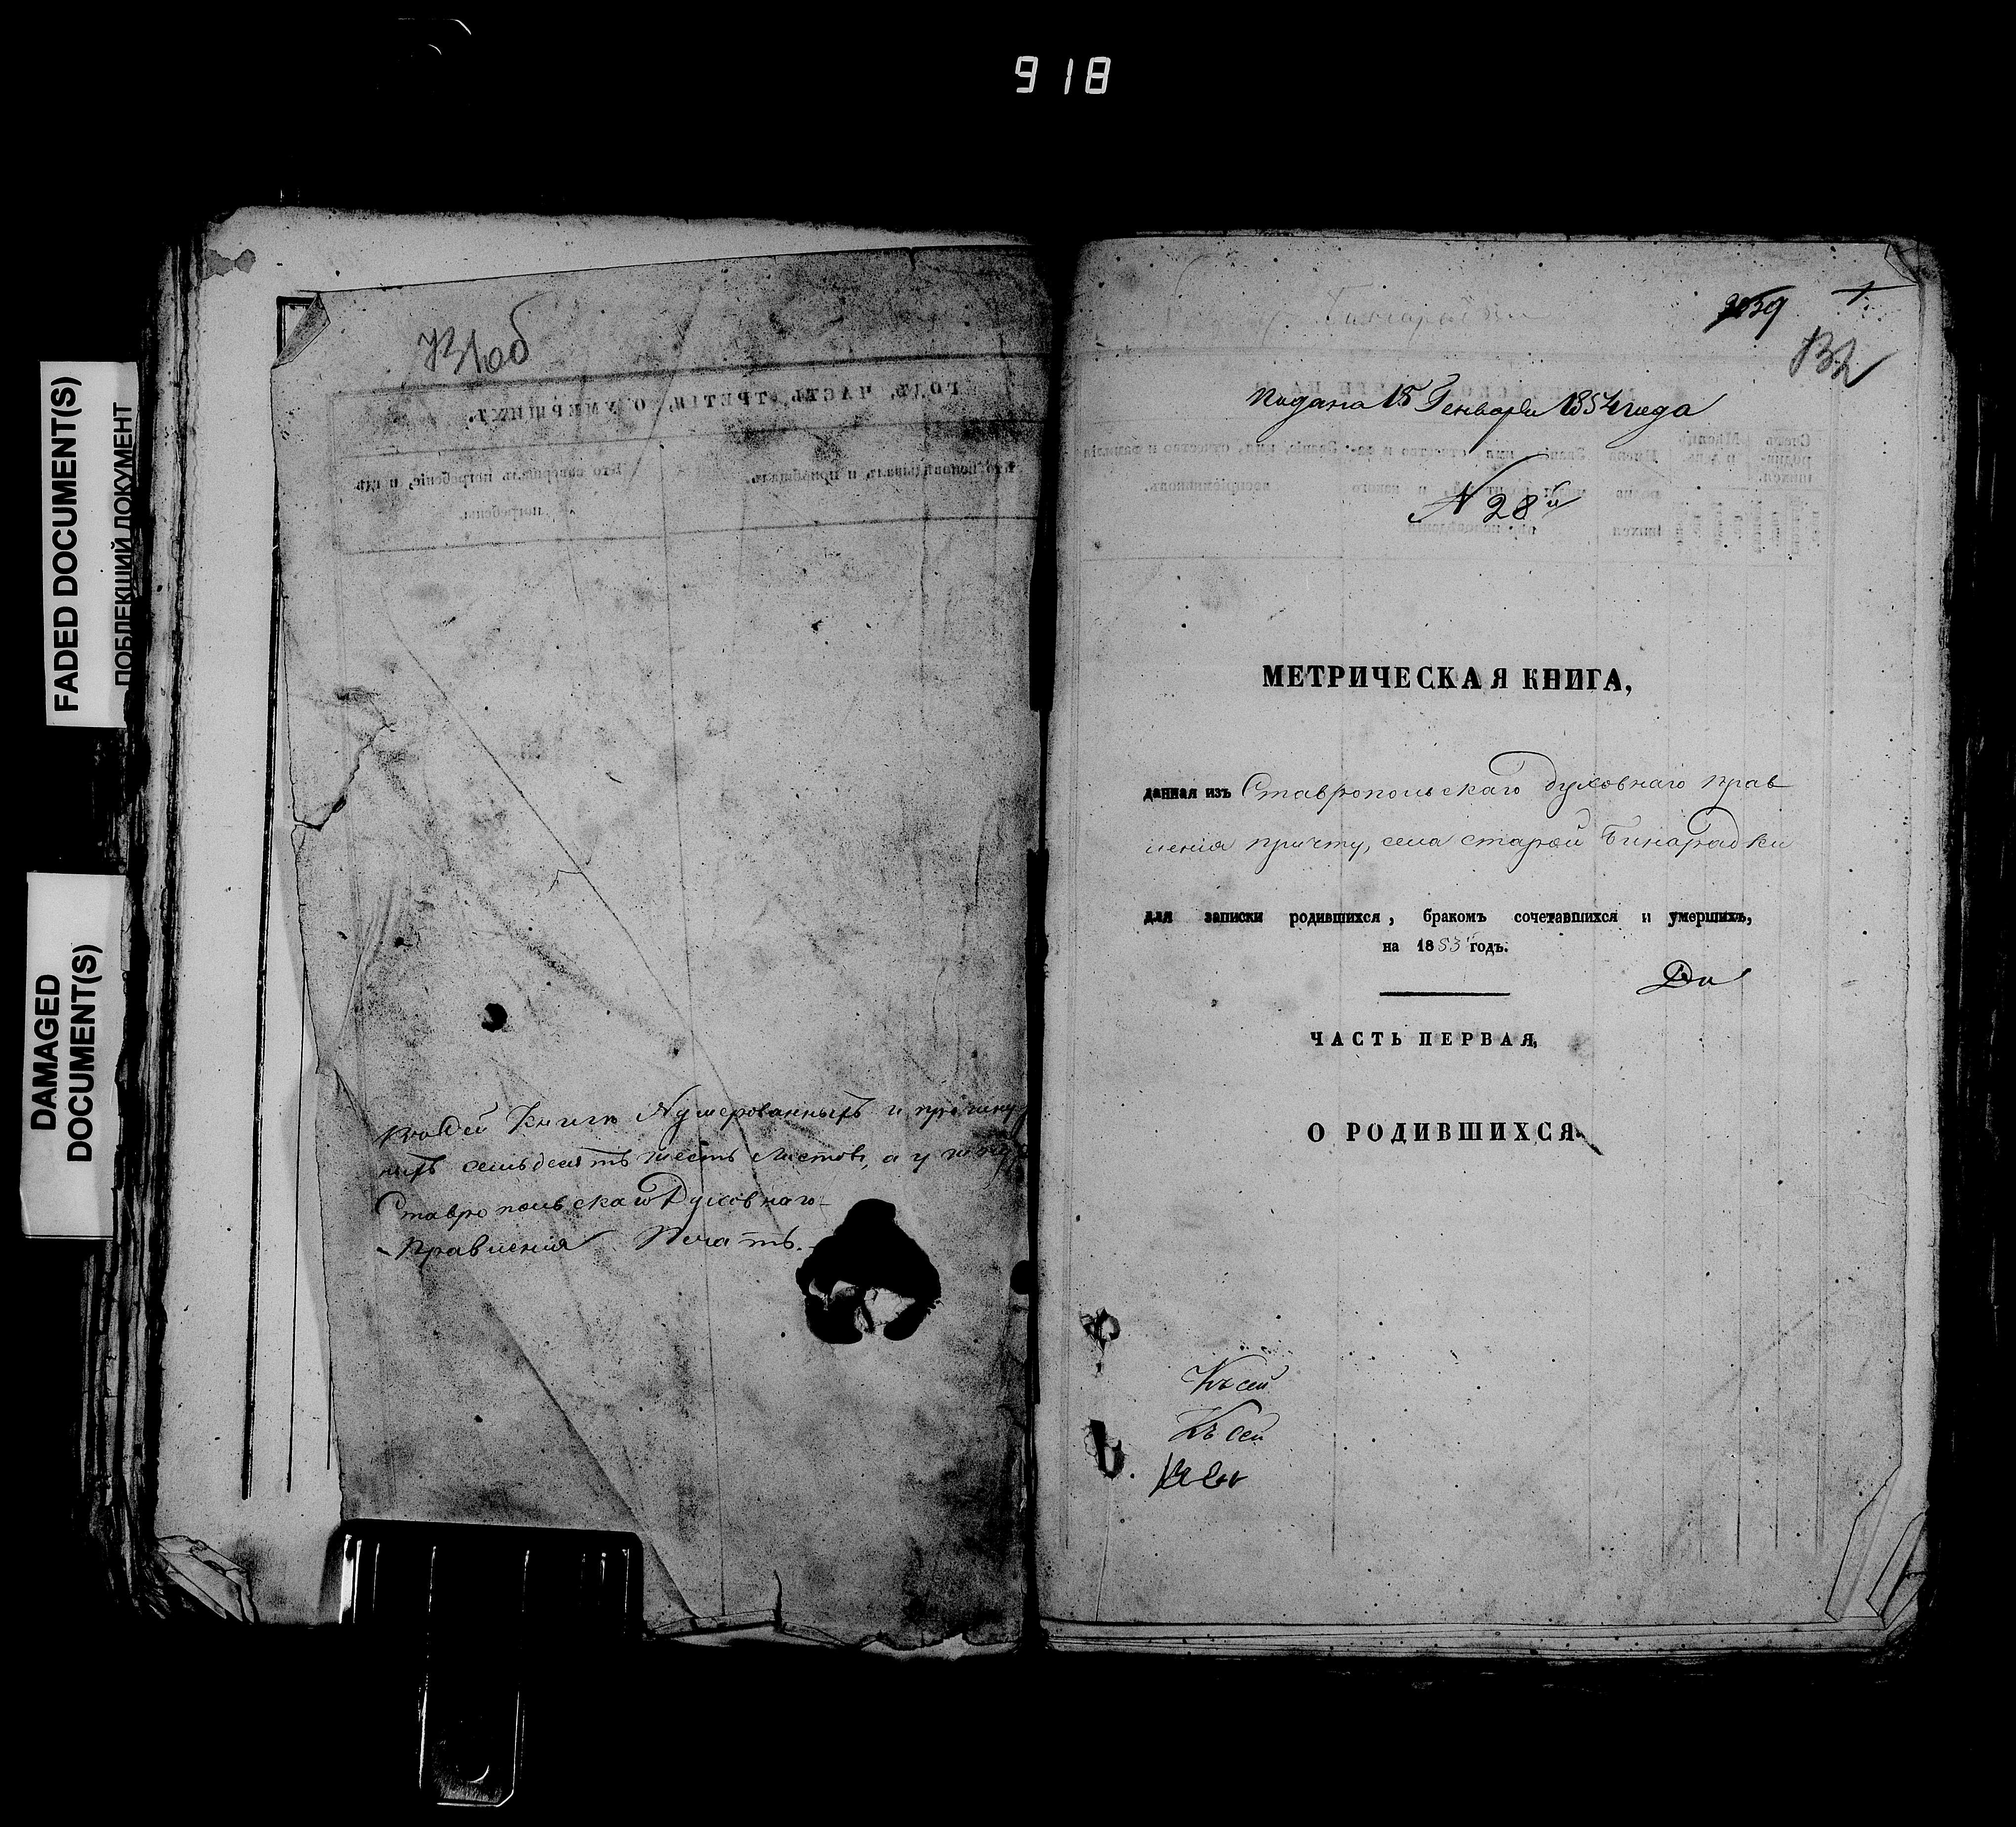 918
FADED DOCUMENT(S)
ПОБЛЕКШИЙ ДОКУМЕНТ
DAMAGED
DOCUMENT(S)
131об
ГОДЪ, ЧАСТЬ ТРЕТІЯ, О УМЕРШИХЪ.
Кто исповѣдывалъ и пріобщалъ.
Кто совершалъ погребеніе, и гдѣ
погребены.
Книги Нумерованныхъ и
семьдесятъ шесть листовъ, а у
Ставропольскаго Духовнаго
Правленія Печать.
1
132
Подана 15 Генваря 1854 года
N 28й
МЕТРИЧЕСКАЯ КНИГА,
данная изъ Ставропольскаго Духовнаго прав
ленія причту, села старой Бинарадки
для записки родившихся, бракомъ сочетавшихся и умершихъ,
на 1853 годъ.
ЧАСТЬ ПЕРВАЯ,
О РОДИВШИХСЯ.
Къ сей
Къ сей